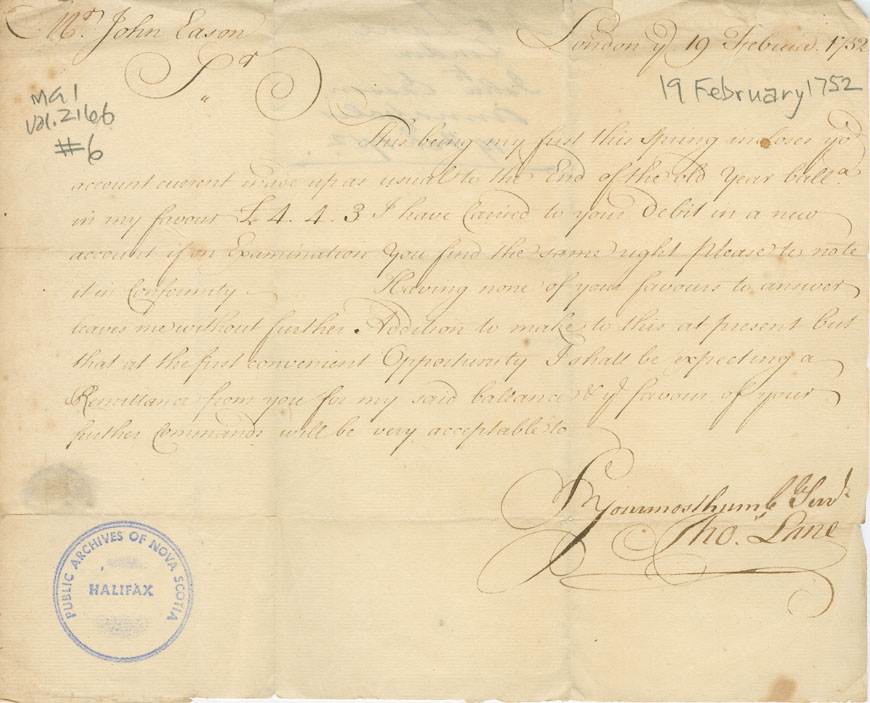 Mr. John Eason
London ye 19 Februa. 1752
Sr
MG1
Vol. 2166
#6
19 February 1752
This being my first this spring incloses yor
account currant made up as usual to the End of the old Year ballce
in my favour £4.4.3 I have Caried to your Debit in a new
account if on Examination You find the same right please to note
it in Conformity Having none of your favours to answer
leaves me without further Addition to make to this at present but
that at the first convenient Opportunity I shall be expecting a
Remittance from you for my said ballance & ye favour of your
further Commands will be very acceptable to
Sr Your most humble Servt
Tho. Lane
PUBLIC ARCHIVES OF NOVA SCOTIA
HALIFAX